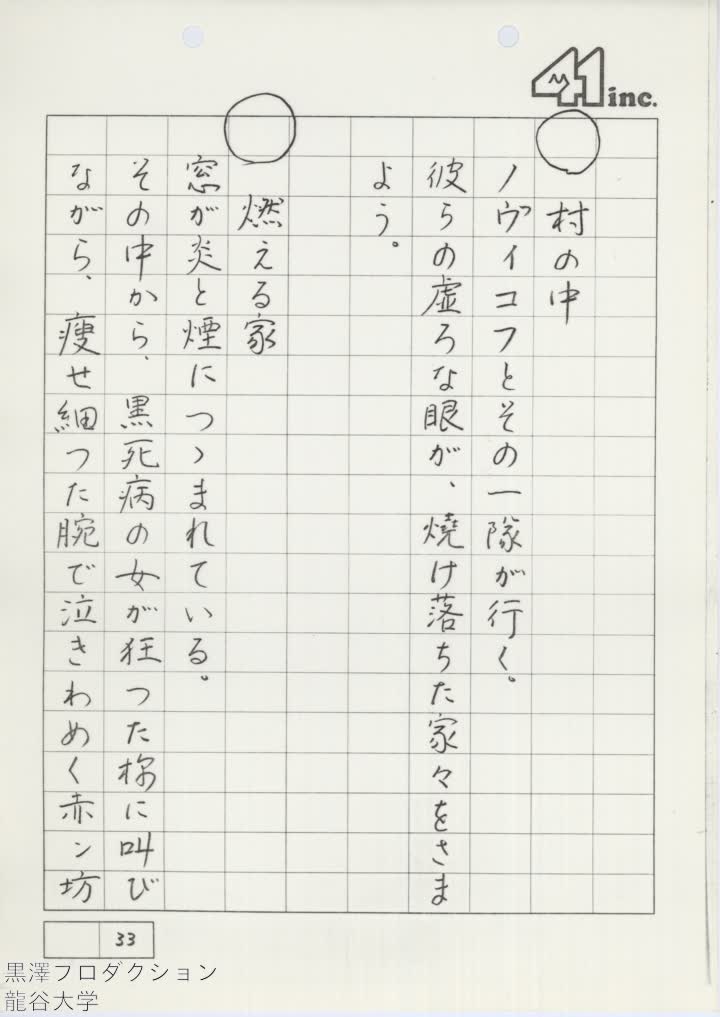 41 inc.
○ 村の中
ノヴイコフとその一隊が行く。
彼らの虚ろな眼が、燒け落ちた家々をさま
よう。
○ 燃える家
窓が炎と煙につゝまれている。
その中から、黒死病の女が狂つた様に叫び
ながら、痩せ細つた腕で泣きわめく赤ン坊
33
黒澤プロダクション
龍谷大学